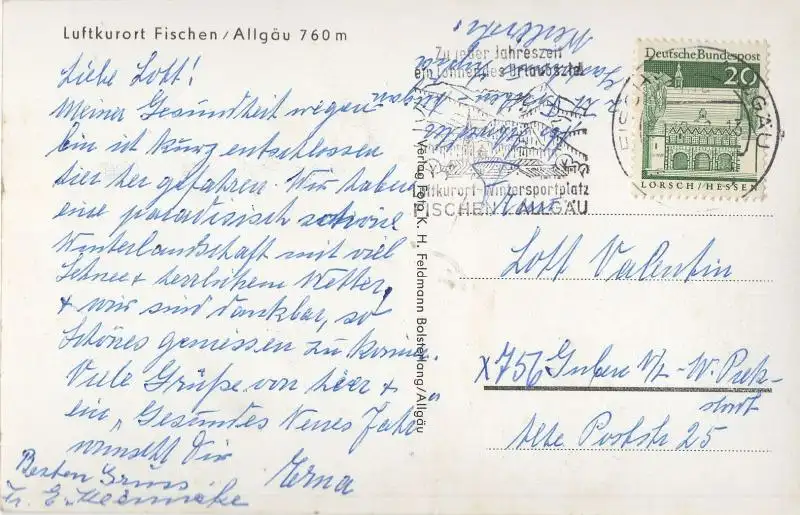 Luftkurort Fischen/Allgäu 760 m
Liebe Lott!
Meiner Gesundheit wegen
bin ich kurz entschlossen
hier her gefahren. Wir haben
eine paradisisch schöne
Winterlandschaft mit viel
Schnee + herrlichem Wetter
+ wir sind dankbar, so
Schönes geniessen zu können.
Viele Grüße von hier +
ein „Gesundes Neues Jahr
wünscht Dir
Erna
Besten Gruss
Fr. E.
Verlag Foto K. H. Feldmann Bolsterlang/Allgäu
Zu jeder Jahreszeit
ein lohnendes Urlaubsziel
Luftkurort - Wintersportplatz
FISCHEN / ALLGÄU
Deutsche Bundespost
20
LORSCH/HESSEN
Frau
Lott Valentin
X756 Guben N/-W. Pieck-
stadt
Alte Poststr 25